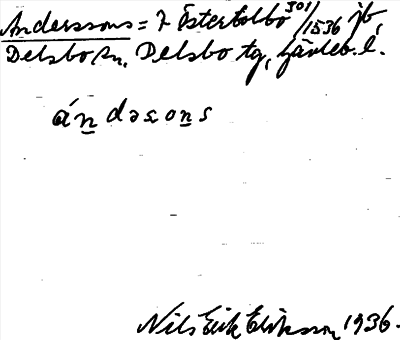 Anderssons = 7 Österbolbo 301/1536 jb,
Delsbo sn, Delsbo tg, Gävleb. l.
ándasons
Nils Erik Eriksson 1936.